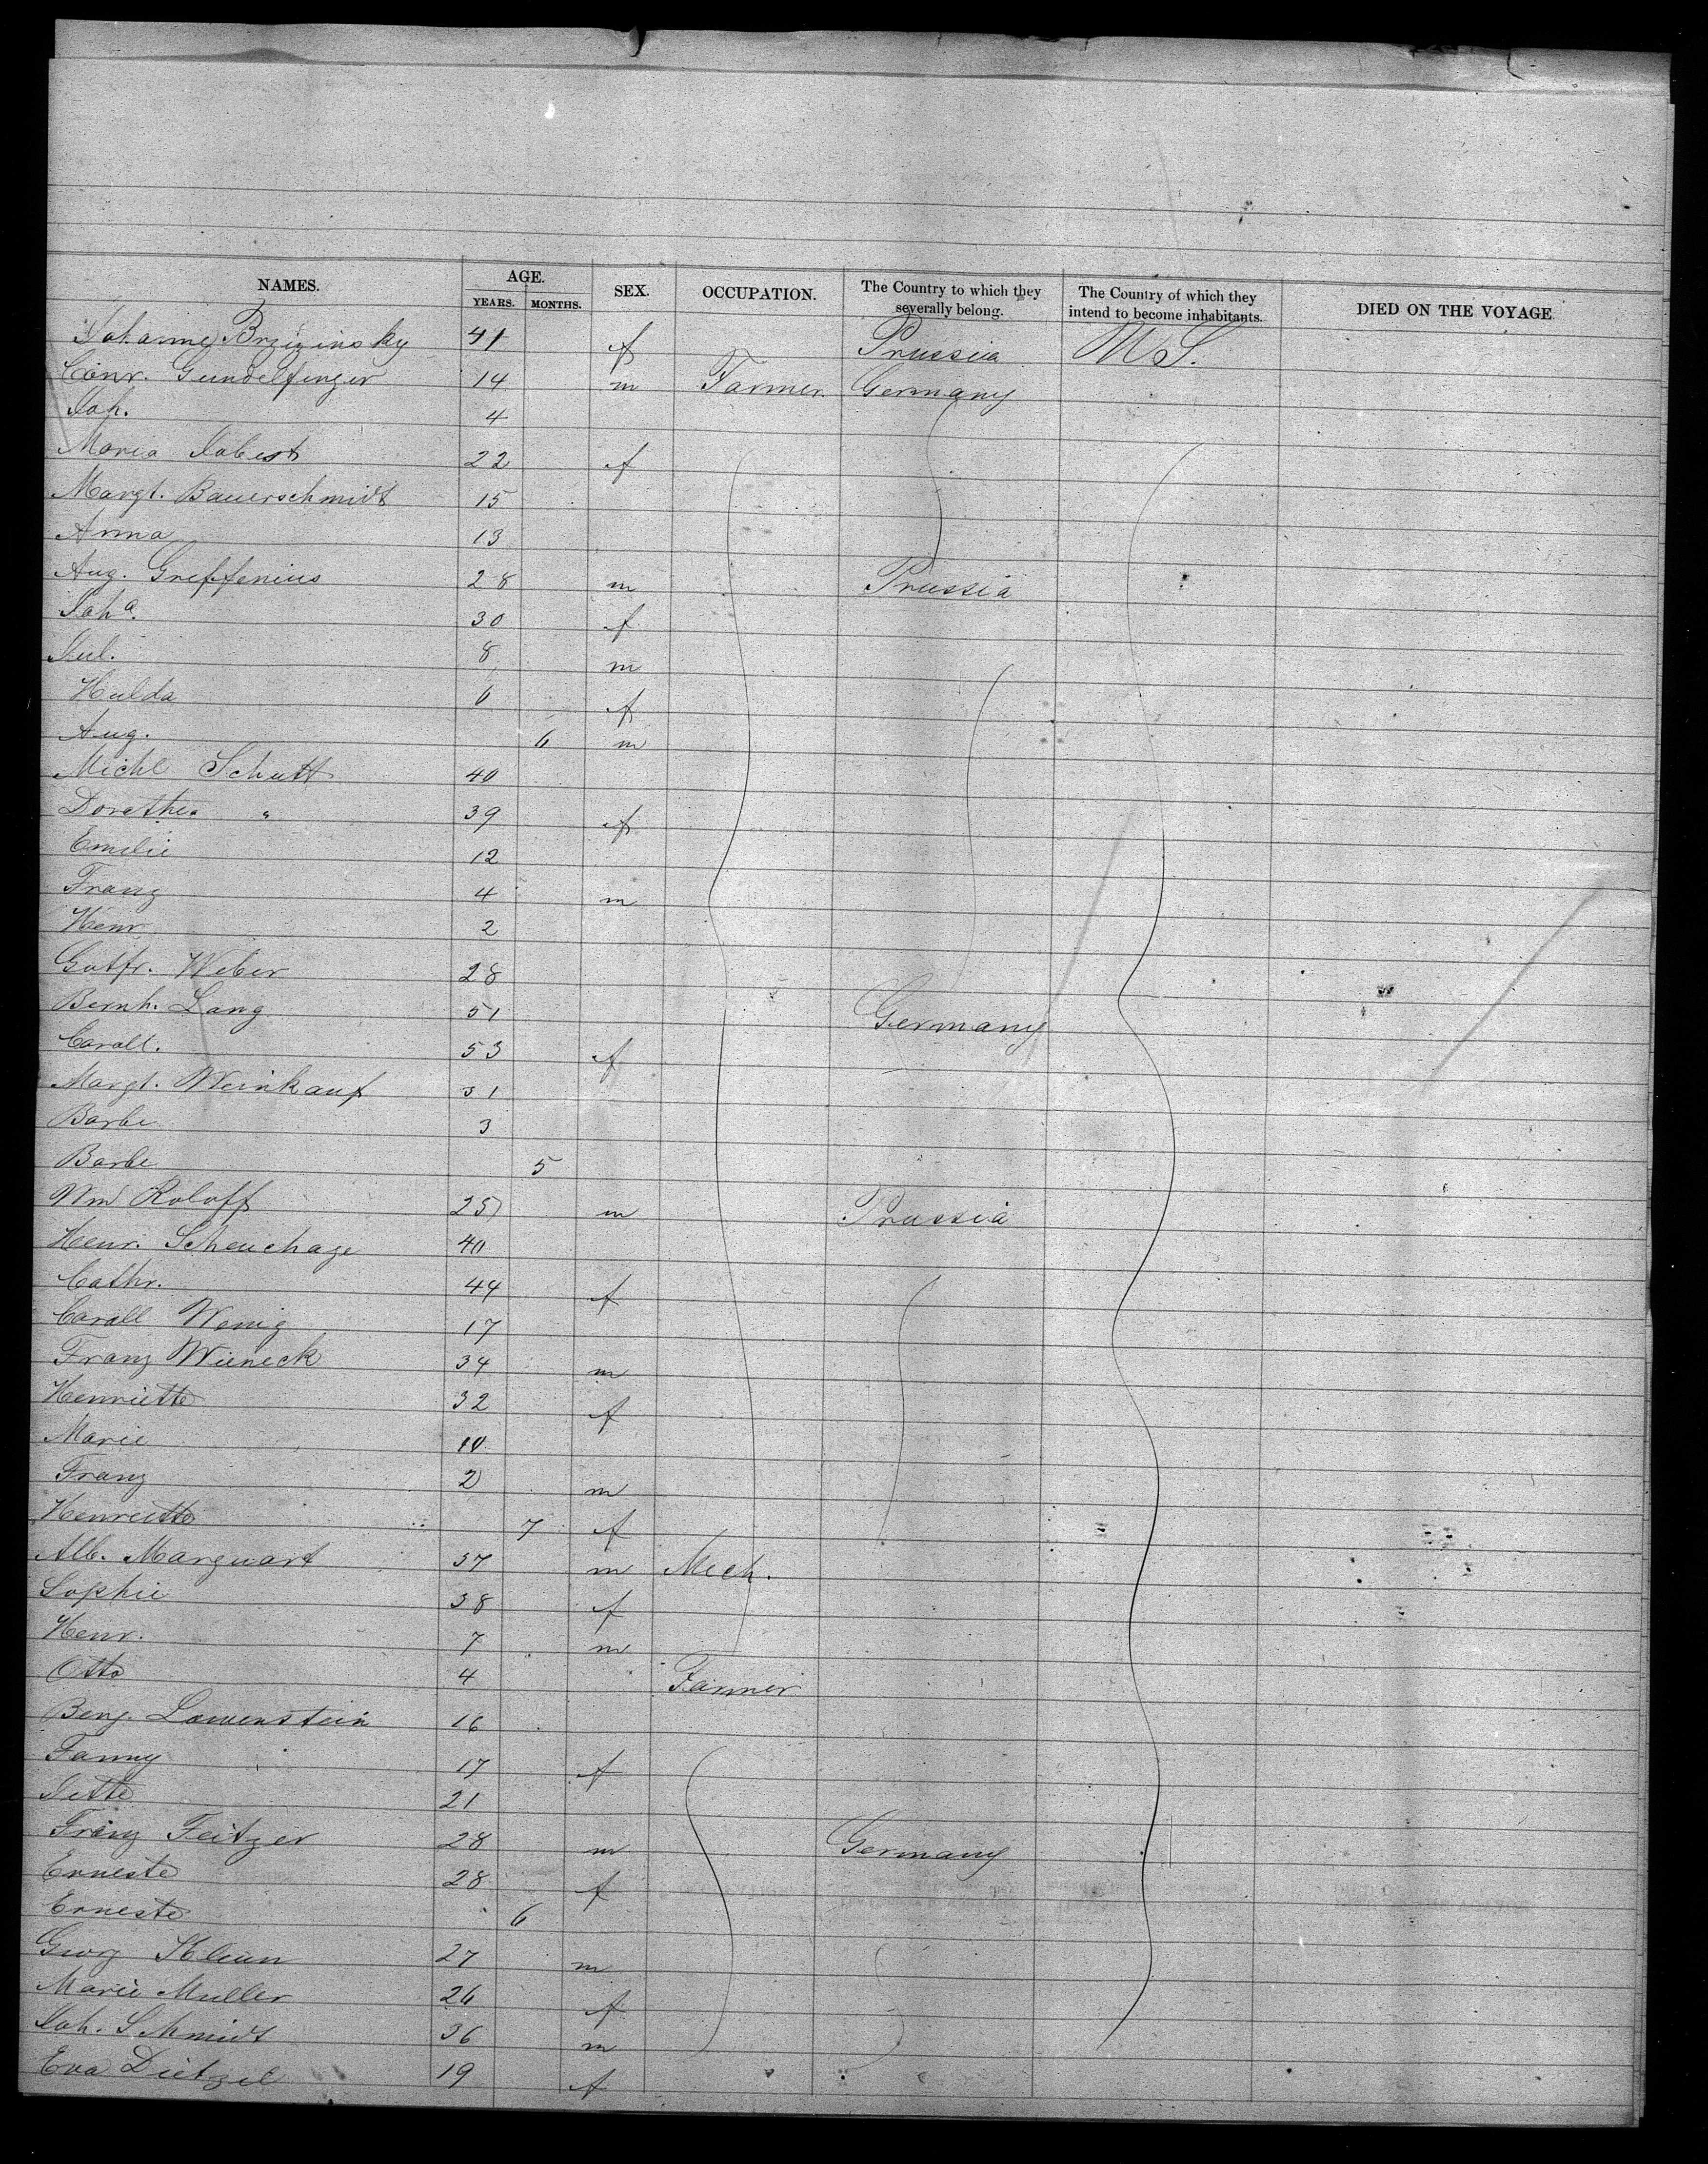 NAMES. AGE. YEARS. MONTHS. SEX. OCCUPATION. The Country to which they severally belong. The Country of which they intend to become inhabitants. DIED ON THE VOYAGE
Brzizinsky 41 f Prussia U S.
Conr. Gundelfinger 14 m Farmer. Germany
Joh. 4
Maria Jobst 22 f
Margt. Bauerschmidt 15
Anna 13
Aug. Greffenius 28 m Prussia
Joha. 30 f
Jul. 8 m
Hulda 6 f
Aug. 6 m
Michl Schutt 40
Dorothea " 39 f
Emilie 12
Franz 4 m
Henr. 2
Gotfr. Weber 28
Bernh. Lang 51 Germany
Caroll. 53 f
Margt. Weinkauf 31
Barbe 3
Barbe 5
Wm Roloff 25 m Prussia
Henr. Scheuchage 40
Cathr. 44 f
Caroll Wenig 17
Franz Wieneck 34 m
Henriette 32 f
Marie 10
Franz 2 m
Henriette 7 f
Alb. Marquart 37 m Mech.
Sophie 38 f
Henr. 7 m
Otto 4 Farmer
Benj. Lowenstein 16
Fanny 17 f
Jette 21
Franz Feitzer 28 m Germany
Erneste 28 f
Erneste 6
Georg Klein 27 m
Marie Muller 26 f
Joh. Schmidt 36 m
Eva Dietzel 19 f